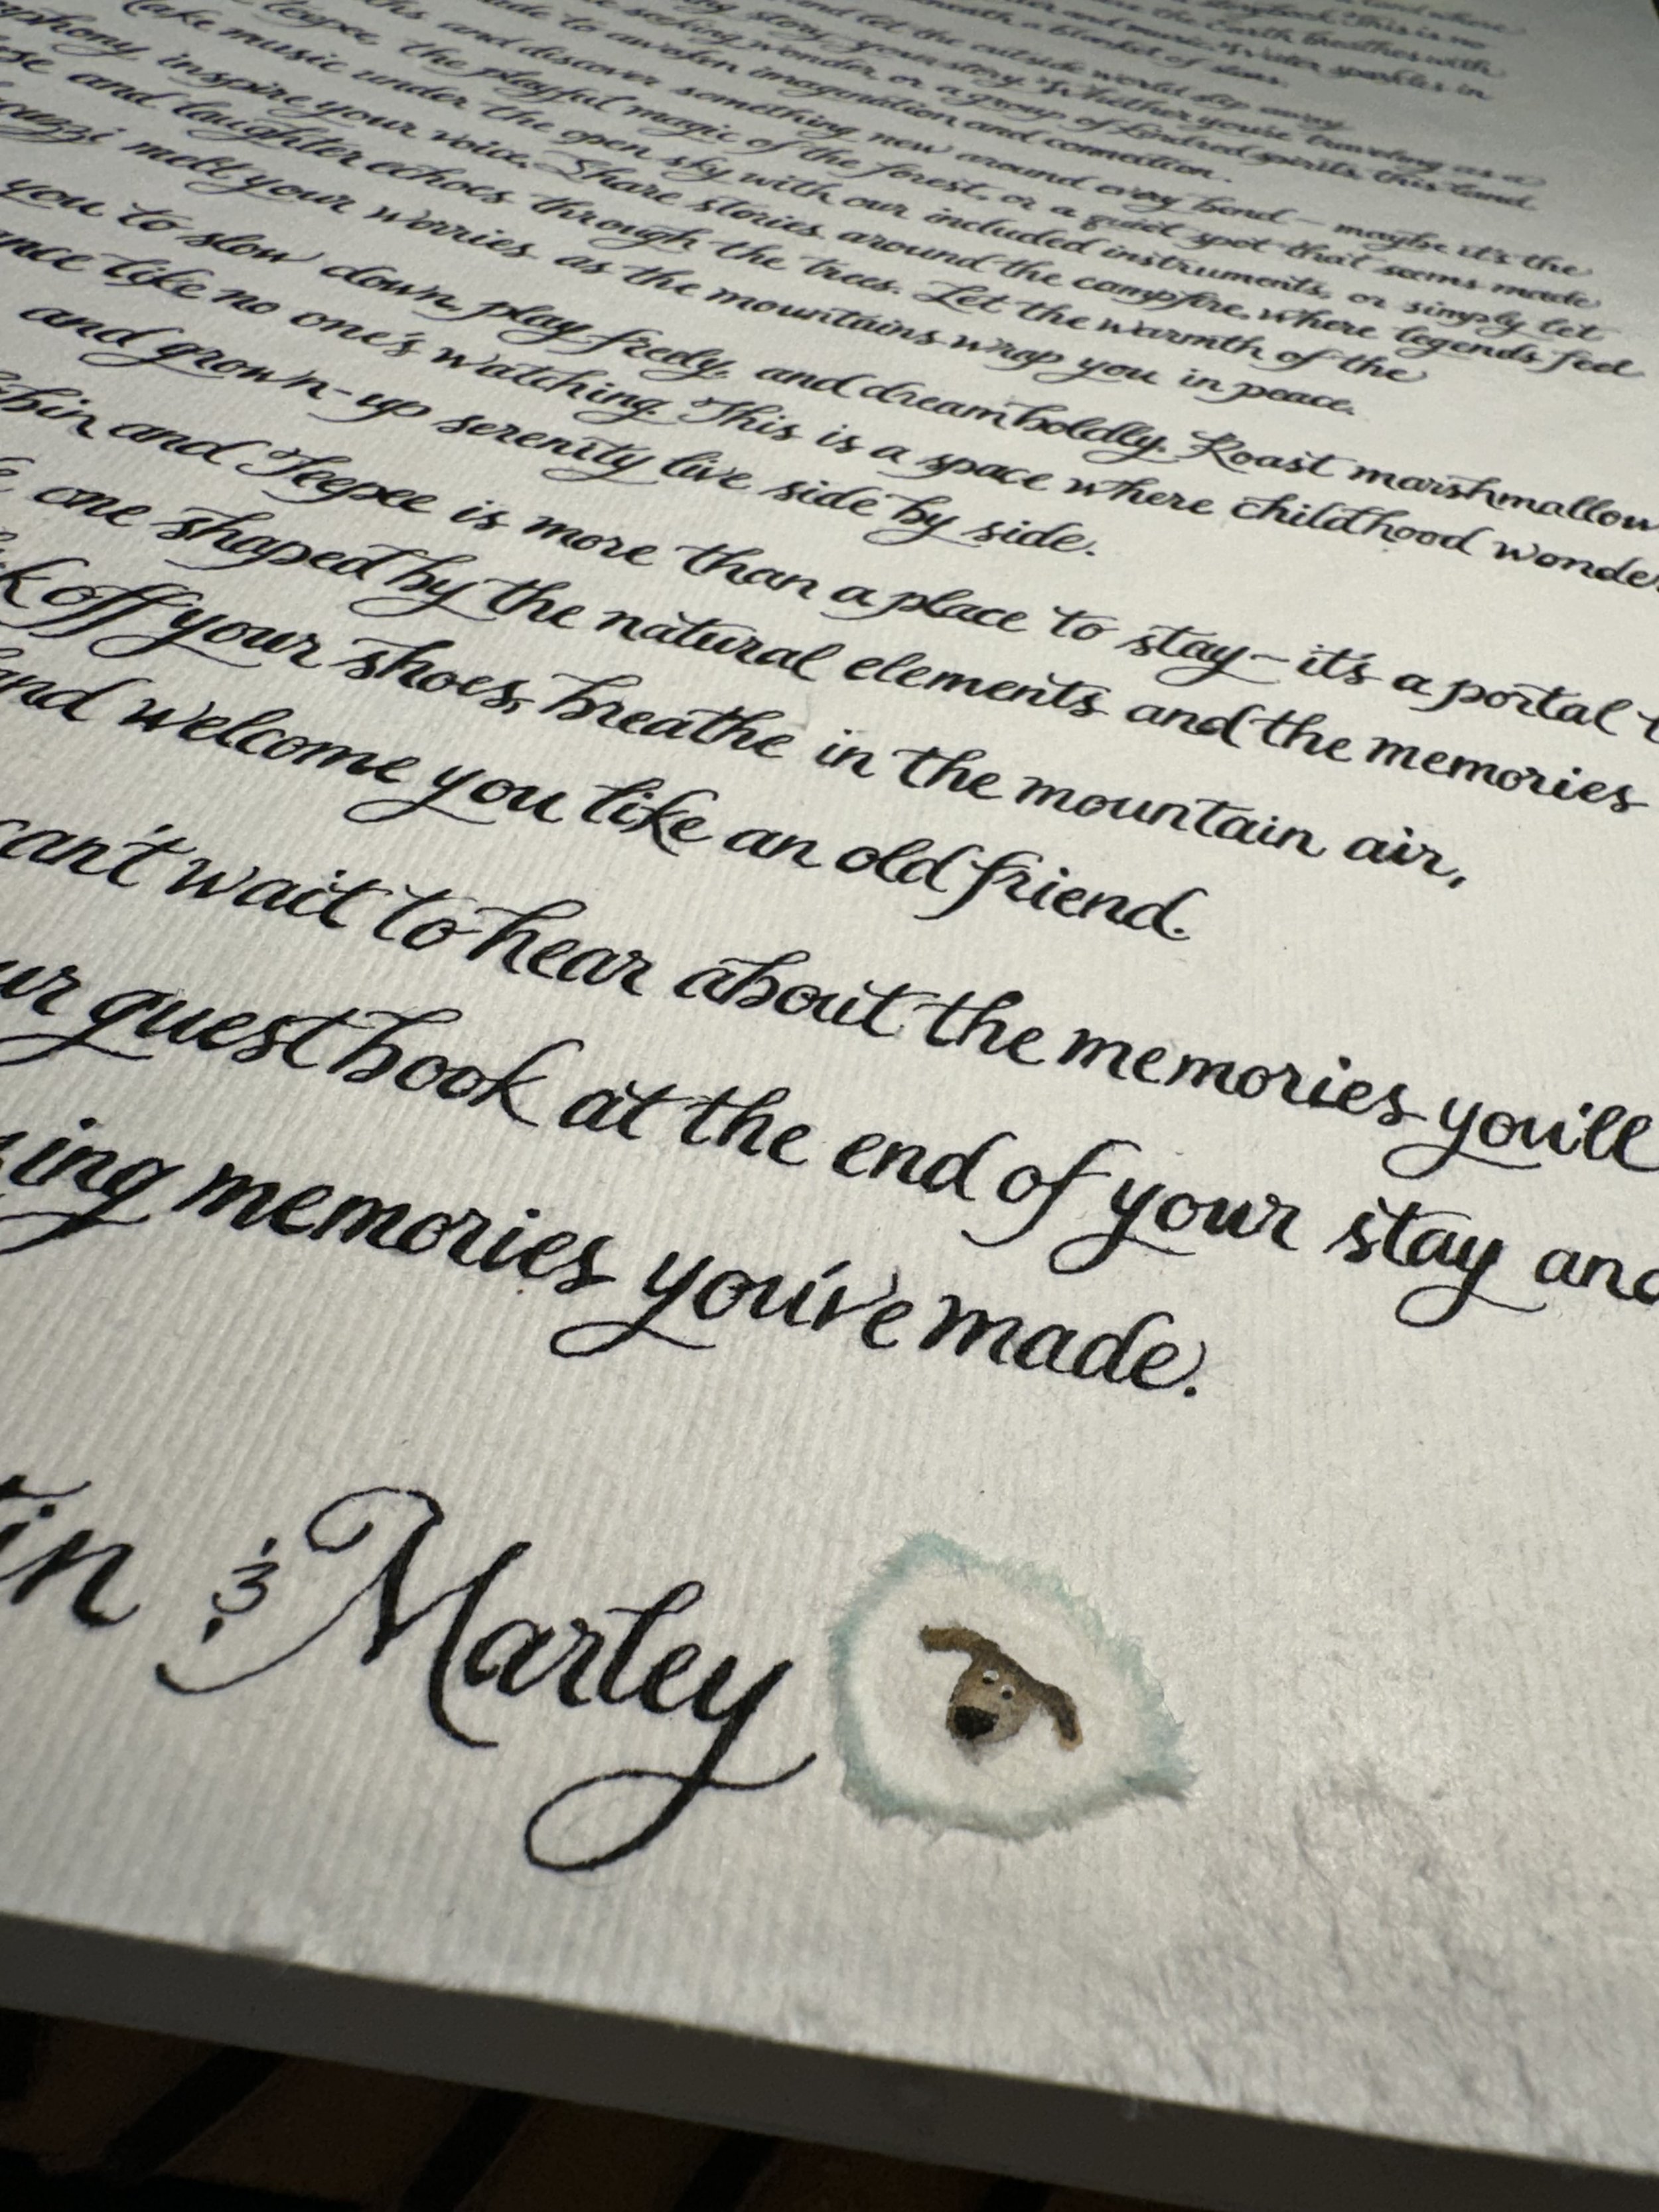 storybook. This is no
the Earth breathes with
and music. Water sparkles in
beneath a blanket of stars.
and let the outside world slip away.
story, your story. Whether you're traveling as a
seeking wonder, or a group of kindred spirits, this land
to awaken imagination and connection.
and discover something new around every bend – maybe it's the
teepee, the playful magic of the forest, or a quiet spot that seems made
Make music under the open sky with our included instruments, or simply let
inspire your voice. Share stories around the campfire, where legends feel
and laughter echoes through the trees. Let the warmth of the
melt your worries as the mountains wrap you in peace.
you to slow down, play freely, and dream boldly. Roast marshmallow
like no one's watching. This is a space where childhood wonder
and grown-up serenity live side by side.
and Teepee is more than a place to stay – it's a portal
one shaped by the natural elements and the memories
off your shoes, breathe in the mountain air,
and welcome you like an old friend.
can't wait to hear about the memories you'll
guest book at the end of your stay and
memories you've made.
& Marley